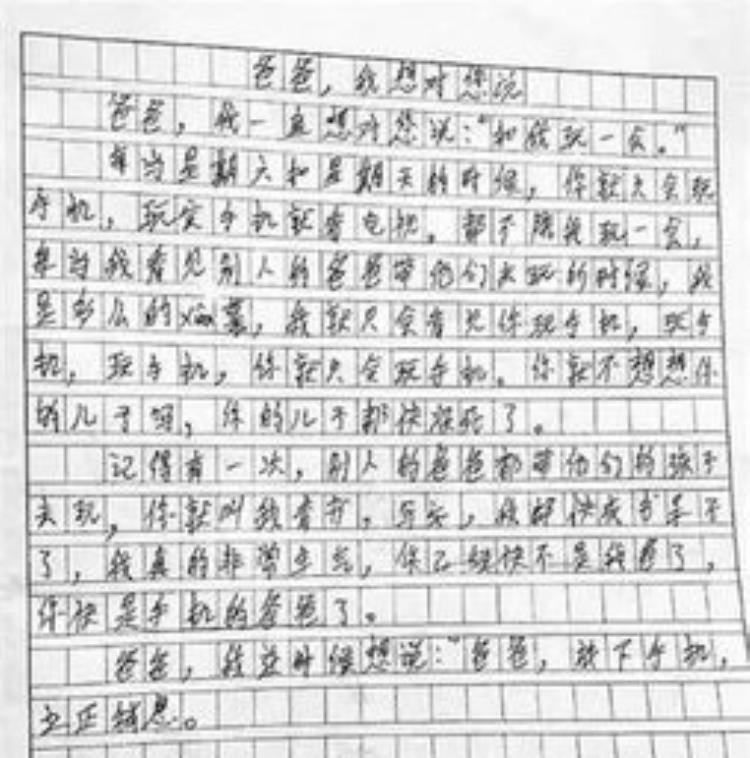 爸爸，我想对您说
爸爸，我一直想对您说：“和我玩一会。”
每当星期六和星期天的时候，你就只会玩
手机，玩完手机就看电视，都不陪我玩一会，
每当我看见别人的爸爸带他们去玩的时候，我
是多么的xian慕，我就只会看见你玩手机，玩手
机，玩手机，你就只会玩手机。你就不想想你
的儿子吗，你的儿子都快疯了。
记得有一次，别人的爸爸都带他们的孩子
去玩，你就叫我看书，写字，我都快成书呆子
了，我真的非常生气，你已经快不是我爸了，
你快是手机的爸爸了。
爸爸，我这时候想说：“爸爸，放下手机，
立正稍息。